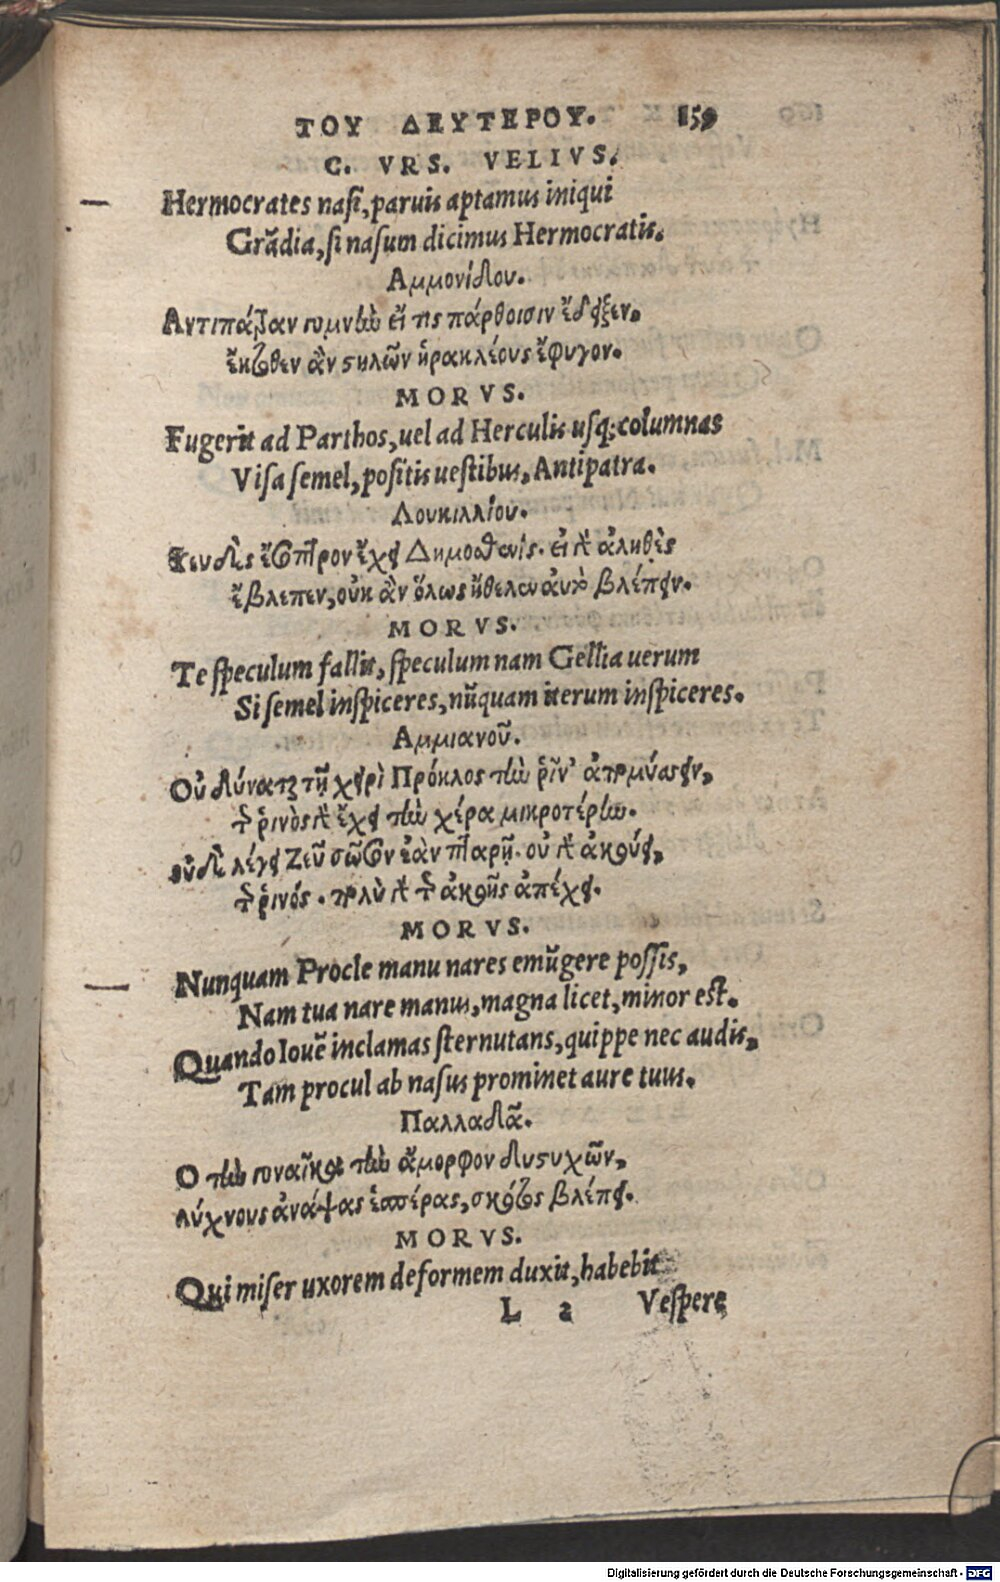 ΤΟΥ ΔΕΥΤΕΡΟΥ. 159
C. VRS. VELIVS.
Hermocrates nasi, paruis aptamus iniqui
Grãdia, si nasum dicimus Hermocratis.
Αμμονίδου.
Αντιπάτραν γυμνὴν εἴ τις πάρθοισιν ἔδειξεν,
ἔκτοθεν ἂν στηλῶν ἡρακλέους ἔφυγον.
MORVS.
Fugerit ad Parthos, uel ad Herculis usq; columnas
Visa semel, positis uestibus, Antipatra.
Λουκιλλίου.
Ψευδὲς ἔσοπτρον ἔχει Δημοσθενίς. εἰ γὰρ ἀληθὲς
ἔβλεπεν, οὐκ ἂν ὅλως ἤθελεν αὐτὸ βλέπειν.
MORVS.
Te speculum fallit, speculum nam Gellia uerum
Si semel inspiceres, nũquam iterum inspiceres.
Αμμιανοῦ.
Οὐ δύναται τῇ χειρὶ Πρόκλος τὴν ῥῖν' ἀπομύσσειν,
τῆς ῥινὸς γὰρ ἔχει τὴν χέρα μικροτέρην.
οὐδὲ λέγει Ζεῦ σῶσον ἐὰν πταρῇ. οὐ γὰρ ἀκούει,
τῆς ῥινός. πολὺ γὰρ τῆς ἀκοῆς ἀπέχει.
MORVS.
Nunquam Procle manu nares emũgere possis,
Nam tua nare manus, magna licet, minor est.
Quando Iouẽ inclamas sternutans, quippe nec audis,
Tam procul ab nasus prominet aure tuus.
Παλλαδᾶ.
Ο τὴν γυναῖκα τὴν ἄμορφον δυστυχῶν,
λύχνους ἀνάψας ἑσπέρας, σκότος βλέπει.
MORVS.
Qui miser uxorem deformem duxit, habebit
L 2 Vespere
Digitalisierung gefördert durch die Deutsche Forschungsgemeinschaft - DFG